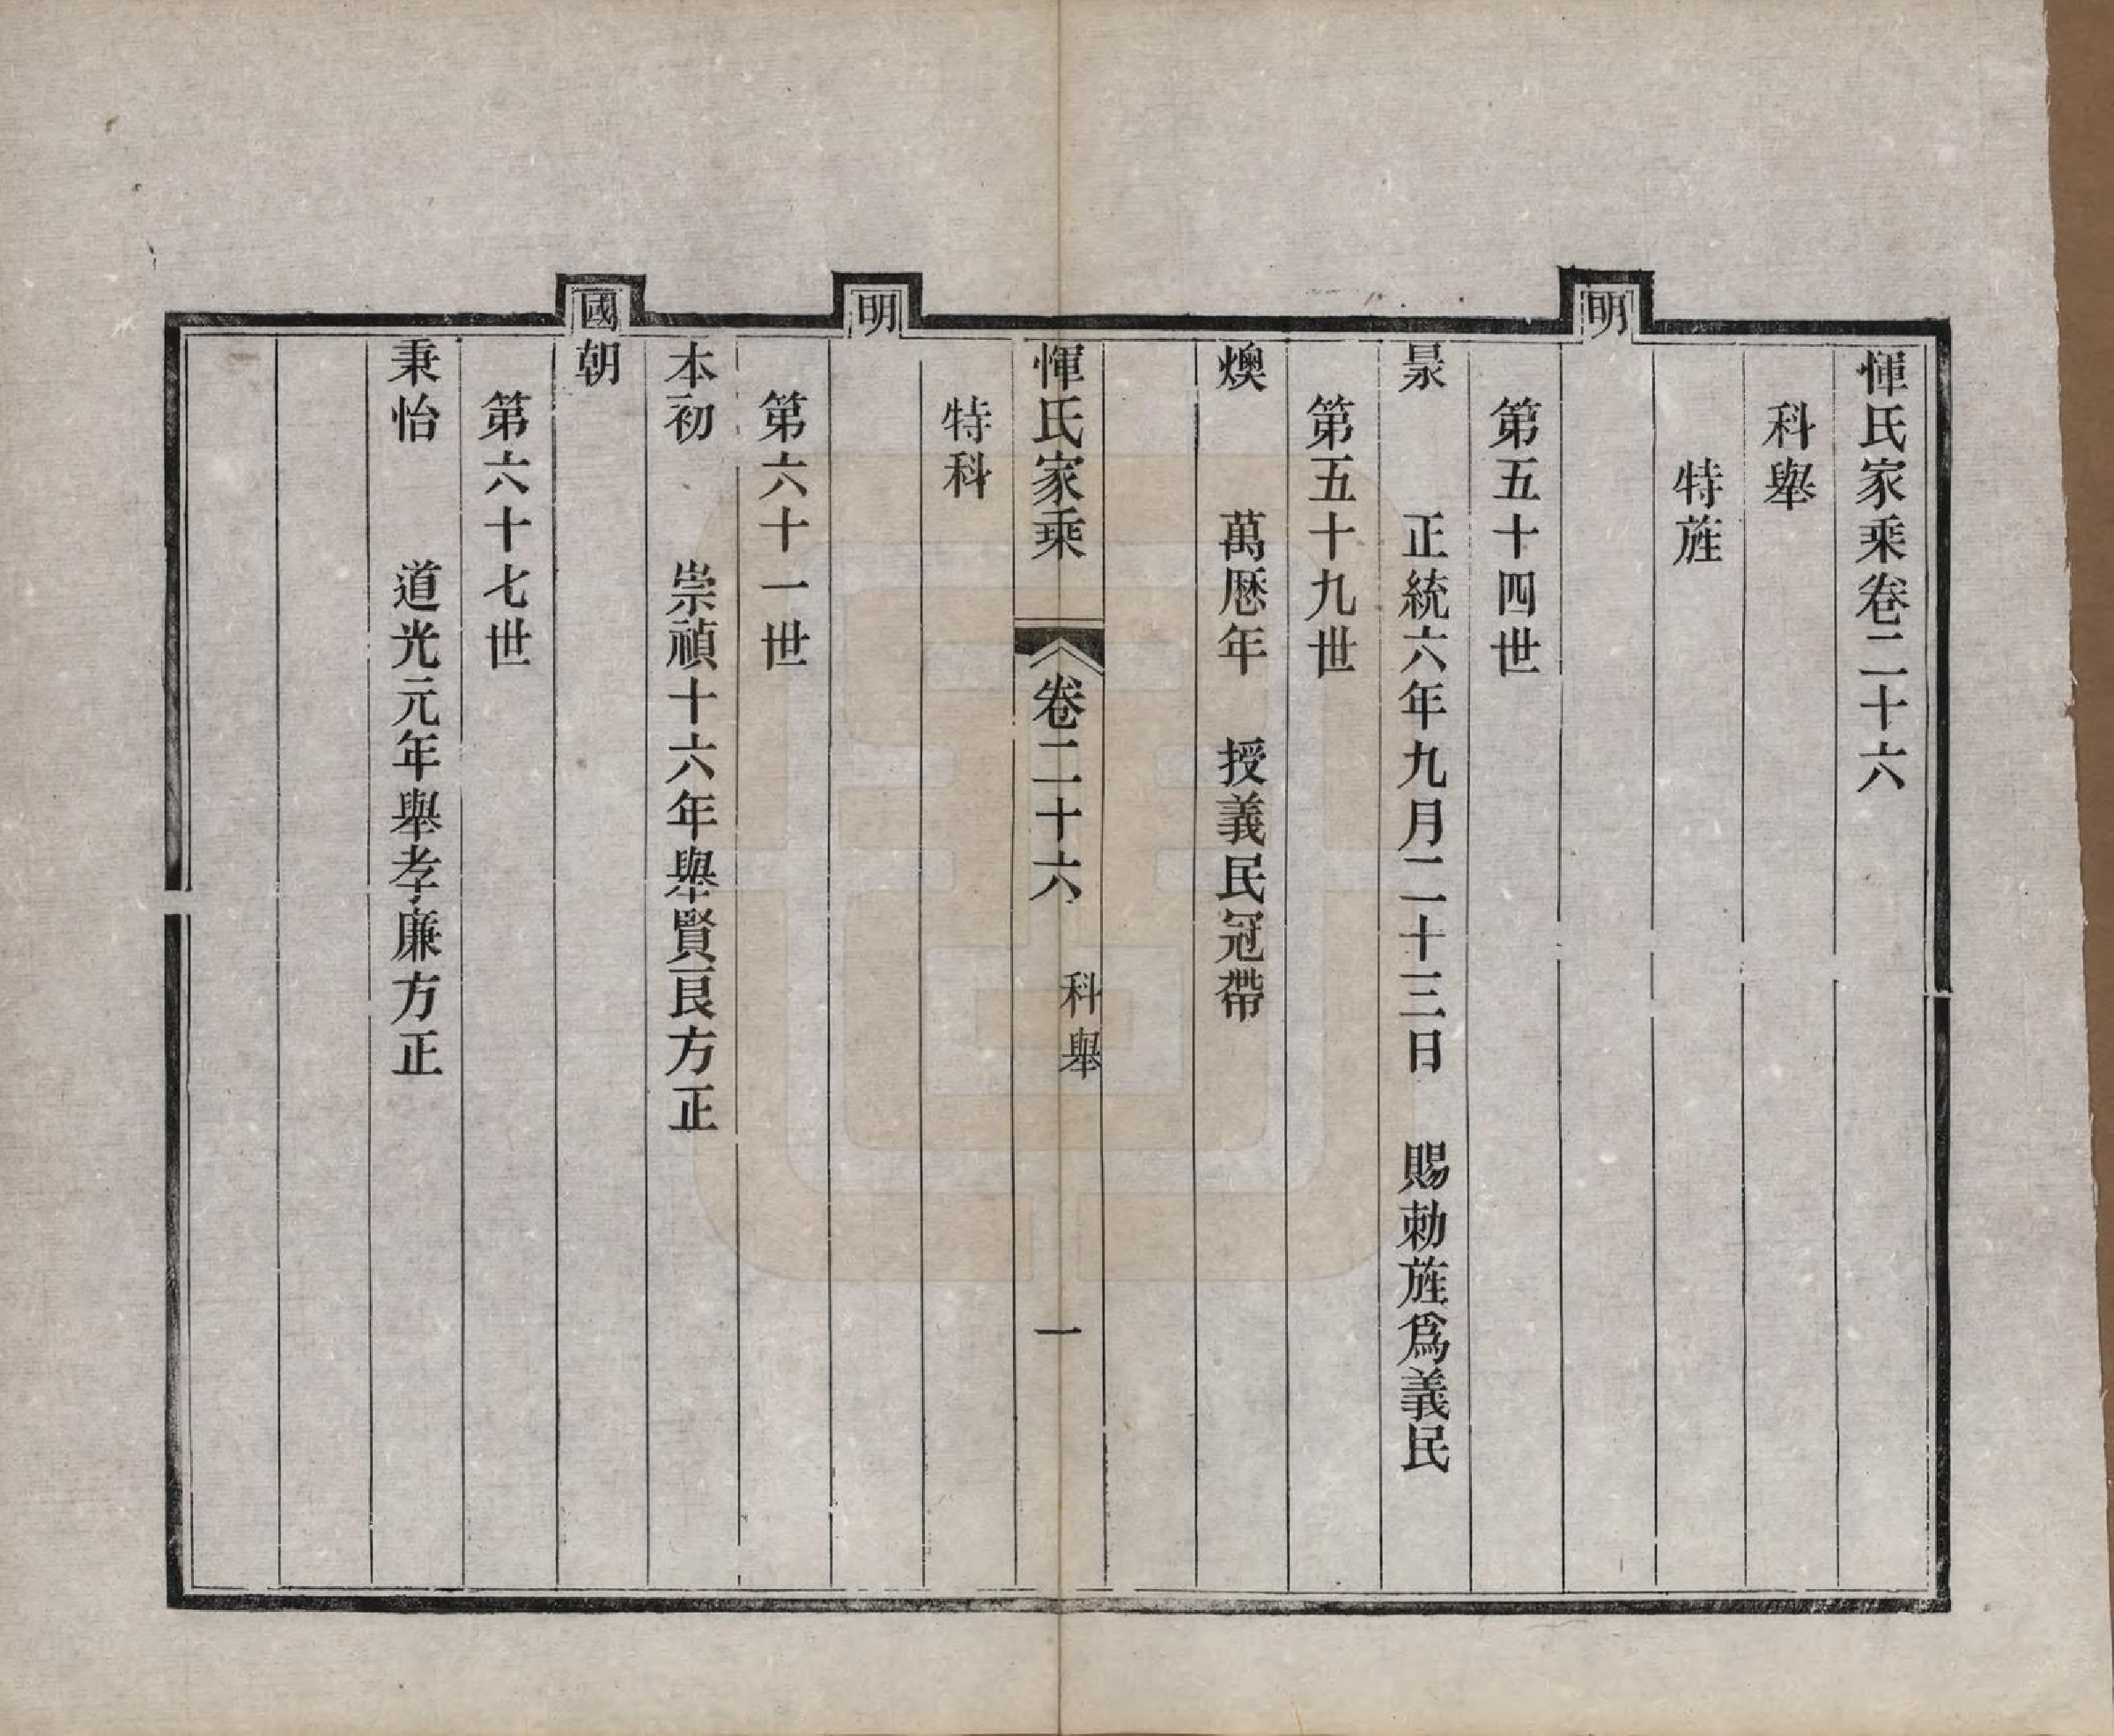 惲氏家乘卷二十六
科舉
特旌
明
第五十四世
景 正統六年九月二十三日 賜勅旌爲義民
第五十九世
燠 萬厯年 授義民冠帶
惲氏家乘 卷二十六 科舉 一
特科
明
第六十一世
本初 崇禎十六年舉賢良方正
國朝
第六十七世
秉怡 道光元年舉孝廉方正